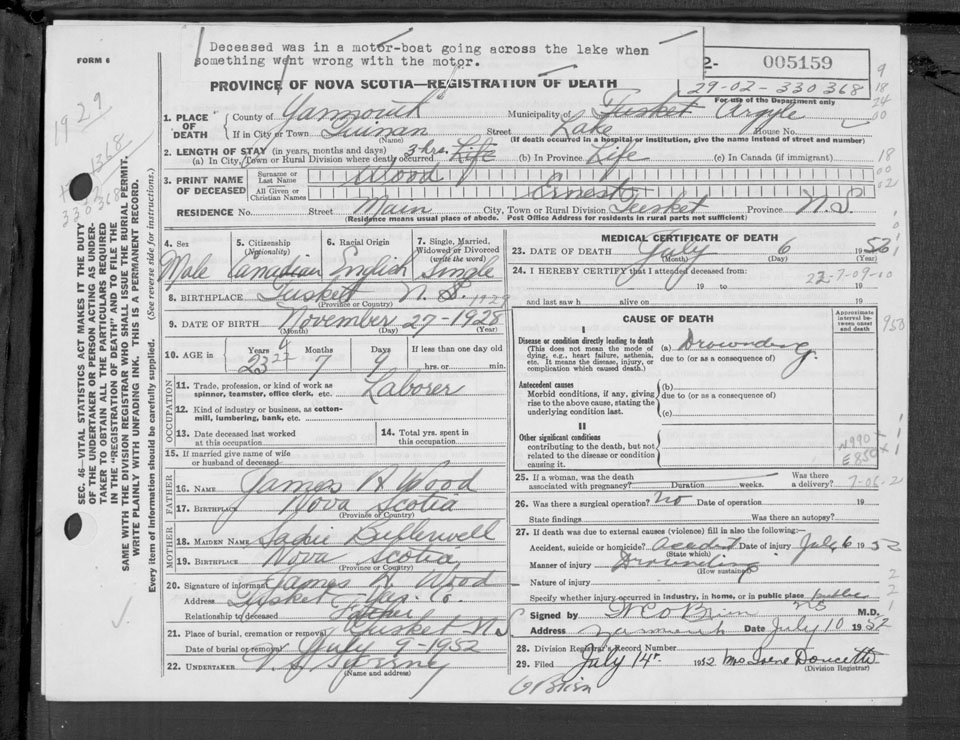 Deceased was in a motor-boat going across the lake when
something went wrong with the motor.
FORM 6
2- 005159
29-02-330368
For use of the Department only
PROVINCE OF NOVA SCOTIA—REGISTRATION OF DEATH
1929
1. PLACE OF DEATH
County of Yarmouth Municipality of Tusket Argyle
If in City or Town Quinan Street Lake House No.
(Name) (If death occurred in a hospital or institution, give the name instead of street and number)
2. LENGTH OF STAY (in years, months and days)
(a) In City, Town or Rural Division where death occurred 3 hrs. Life (b) In Province Life (c) In Canada (if immigrant)
3. PRINT NAME OF DECEASED
Surname or Last Name Wood
All Given or Christian Names Ernest
RESIDENCE No. Street Main City, Town or Rural Division Tusket Province N.S.
(Residence means usual place of abode. Post Office Address for residents in rural parts not sufficient)
SEC. 46—VITAL STATISTICS ACT MAKES IT THE DUTY
OF THE UNDERTAKER OR PERSON ACTING AS UNDER-
TAKER TO OBTAIN ALL THE PARTICULARS REQUIRED
IN THE "REGISTRATION OF DEATH" AND TO FILE THE
SAME WITH THE DIVISION REGISTRAR WHO SHALL ISSUE THE BURIAL PERMIT.
WRITE PLAINLY WITH UNFADING INK. THIS IS A PERMANENT RECORD.
Every item of information should be carefully supplied. (See reverse side for instructions.)
4. Sex
Male
5. Citizenship (Nationality)
Canadian
6. Racial Origin
English
7. Single, Married, Widowed or Divorced (write the word)
Single
8. BIRTHPLACE Tusket N.S.
(Province or Country)
1929
9. DATE OF BIRTH November 27-1928
(Month) (Day) (Year)
10. AGE in Years Months Days If less than one day old
23 22 7 9 hrs. or min.
OCCUPATION
11. Trade, profession, or kind of work as
spinner, teamster, office clerk, etc. Laborer
12. Kind of industry or business, as cotton-
mill, lumbering, bank, etc.
13. Date deceased last worked
at this occupation
14. Total yrs. spent in
this occupation
15. If married give name of wife
or husband of deceased
FATHER
16. NAME James H Wood
17. BIRTHPLACE Nova Scotia
(Province or Country)
MOTHER
18. MAIDEN NAME Sadie
19. BIRTHPLACE Nova Scotia
(Province or Country)
20. Signature of informant James H. Wood
Address Tusket Yar. Co.
Relationship to deceased Father
21. Place of burial, cremation or removal Tusket N.S
Date of burial or removal July 9-1952
22. UNDERTAKER
(Name and address)
MEDICAL CERTIFICATE OF DEATH
23. DATE OF DEATH July 6 1952
(Month) (Day)
24. I HEREBY CERTIFY that I attended deceased from:
22-7-09-10
19 to 19
and last saw h alive on 19
CAUSE OF DEATH
Approximate interval between onset and death
I
Disease or condition directly leading to death
(This does not mean the mode of
dying, e.g., heart failure, asthenia,
etc. It means the disease, injury, or
complication which caused death.)
(a) Drownding.
due to (or as a consequence of)
Antecedent causes
Morbid conditions, if any, giving
rise to the above cause, stating the
underlying condition last.
(b)
due to (or as a consequence of)
(c)
II
Other significant conditions
contributing to the death, but not
related to the disease or condition
causing it.
N990
E850
25. If a woman, was the death
associated with pregnancy? Duration weeks. Was there
a delivery?
7-06-2
26. Was there a surgical operation? No Date of operation 19
State findings Was there an autopsy?
27. If death was due to external causes (violence) fill in also the following:—
Accident, suicide or homicide? Accident Date of injury July 6 1952
(State which)
Manner of injury Drownding
(How sustained)
Nature of injury
Specify whether injury occurred in industry, in home, or in public place public
Signed by W C O'Brien M.D.
Address Yarmouth NS Date July 10 1952
28. Division Registrar's Record Number
29. Filed July 14 1952 Mrs Irene Doucette
(Division Registrar)
O'Brien